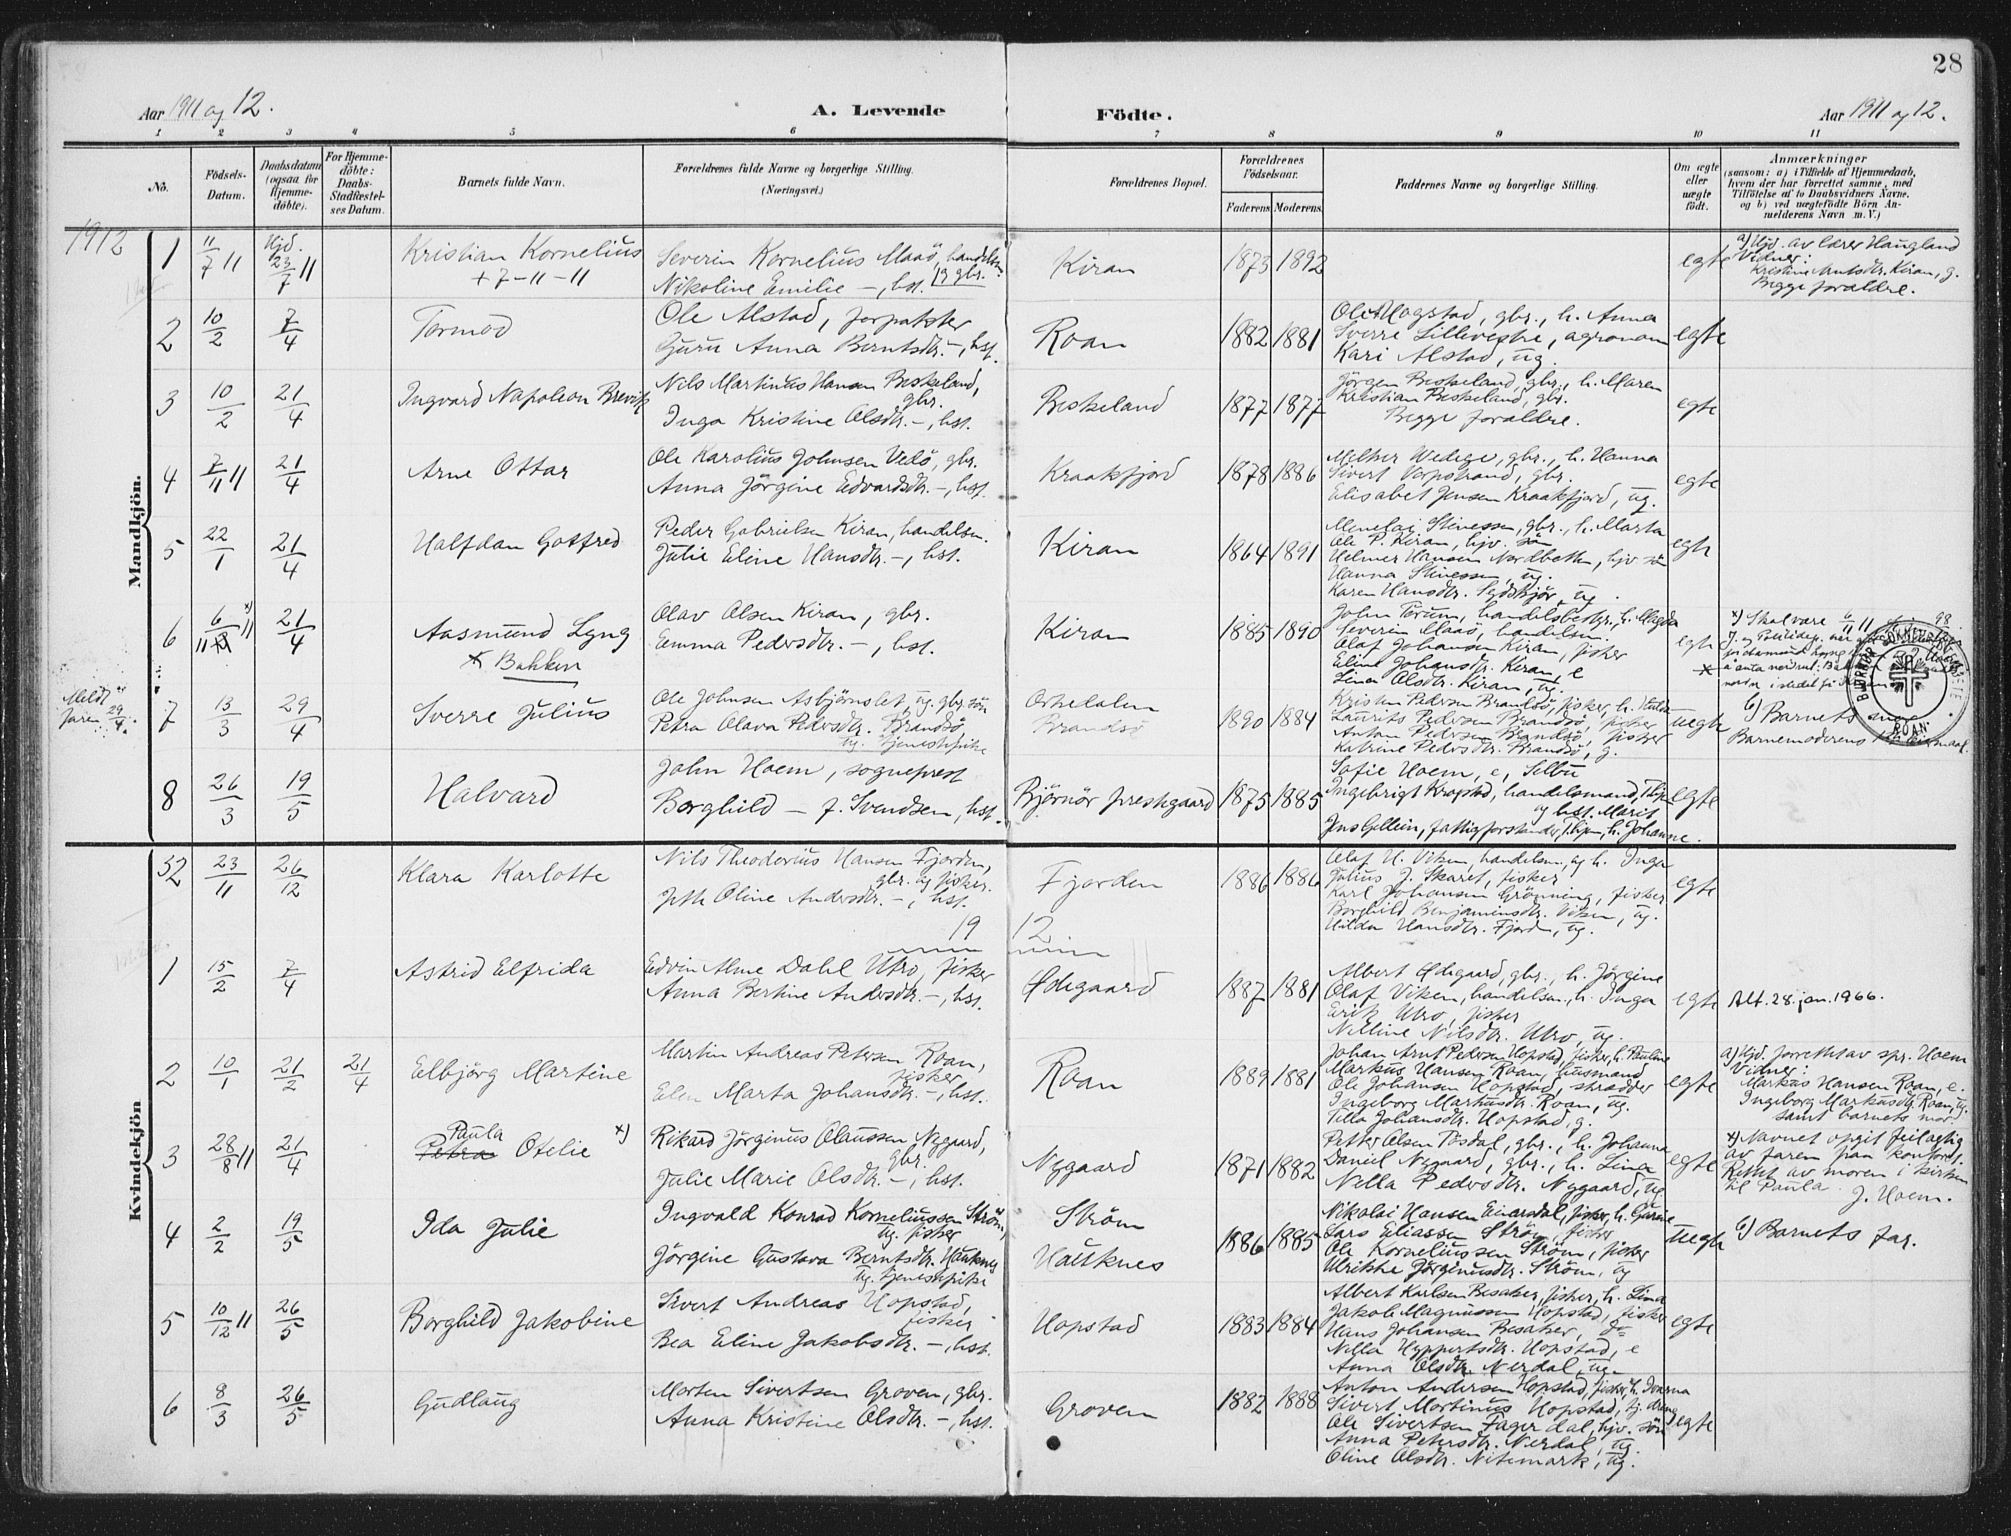 28
Aar 1911 og 12.
A. Levende
Födte.
Aar 1911 og 12.
1 2 3 4 5 6 7 8 9 10 11
No.
Födsels-
Datum.
Daabsdatum
(ogsaa for
Hjemme-
döbte).
For Hjemme-
döbte:
Daabs-
Stadfæstel-
ses Datum.
Barnets fulde Navn.
Forældrenes fulde Navne og borgerlige Stilling.
(Næringsvei.)
Forældrenes Bopæl.
Forældrenes
Födselsaar.
Faderens Moderens
Faddernes Navne og borgerlige Stilling.
Om ægte
eller
uægte
födt.
Anmærkninger
(saasom: a) i Tilfælde af Hjemmedaab,
hvem der har forrettet samme, med
Tilföielse af to Daabsvidners Navne,
og b) ved uægtefödte Börn An-
melderens Navn m.V.)
1912
Mandkjön.
1 11/7 11 Hjd. 23/7 11
Kristian Kornelius
+ 7-11-11
Severin Kornelius Maaö, handelsm.
19 gbr.
Nikoline Emilie -, hst.
Kiran 1873 1892 egte
a) Hjd. av lærer Haugland
Vidner:
Kristine Arntsdtr. Kiran, g.
Begge forældre.
2 10/2 7/4 Tormod
Ole Alstad, forpakter
Guru Anna Berntsdtr. -, hst.
Roan 1882 1881
Ole Mogstad, gbr., h. Anna
Sverre Lillevestre, agronom
Kari Alstad, ug.
egte
3 10/2 21/4 Ingvard Napoleon Brevik
Nils Martinus Hansen Beskeland,
gbr.
Inga Kristine Olsdtr. -, hst.
Beskeland 1877 1877
Jörgen Beskeland, gbr., h. Maren
Kristian Beskeland, gbr.
Begge forældre.
egte
4 7/11 11 21/4 Arne Ottar
Ole Karolius Johnsen Vedö, gbr.
Anna Jörgine Edvardsdtr. -, hst.
Kraakfjord 1878 1886
Melher Wedege, gbr., h. Hanna
Sivert Vorpstrand, gbr.
Elisabet Jensen Kraakfjord, ug.
egte
5 22/1 21/4 Halfdan Gotfred
Peder Gabrielsen Kiran, handelsm.
Julie Eline Hansdtr. -, hst.
Kiran 1864 1891
Menelai Stinessen, gbr., h. Marta
Ole P. Kiran, hjv. sön
Helmer Hansen Nordbotten, hjv sön
Hanna Stinessen, ug.
Karen Hansdtr. Sydskjör, ug.
egte
6 6/11 11 x) 21/4
Aasmund Lyng
x Bakken
Olav Olsen Kiran, gbr.
Emma Pedersdtr. -, hst.
Kiran 1885 1890
John Terum, handelsbestyr., h. Magda
Severin Maaö, handelsm.
Olaf Johansen Kiran, fisker
Eline Johansdtr. Kiran, e
Lina Olsdtr. Kiran, ug.
egte x
x) Skal være 6/11 11
BJØRNØR SOKNEPRESTEMBETE
ROAN
Meldt av
faren 29/4.
7 13/3 29/4 Sverre Julius
Ole Johnsen Asbjörnslet, ug. gbr. sön
Petra Olava Pedersdtr. Brandsö,
ug. tjenestepike
Orkedalen
Brandsö
1890 1884
Kristen Pedersen Brandsö, fisker, h. Hulda
Laurits Pedersen Brandsö, fisker
Anton Pedersen Brandsö, fisker
Katrine Pedersdtr. Brandsö, g.
uegte
b) Barnets
Barnemoderens
8 26/3 19/5 Halvard
John Hoem, sogneprest
Borghild - f. Svendsen, hst.
Bjørnör prestegaard 1875 1885
Sofie Hoem, e, Selbu
Ingebrigt Kragstad, handelsmand, Thjem
og hst. Marit
Jens Gellein, fattigforstander, Thjem, h. Johanne.
egte
Kvindekjön
52 23/11 26/12 Klara Karlotte
Nils Theodorius Hansen Fjorden,
gbr. og fisker.
Jth Oline Andersdtr. -, hst.
Fjorden 1886 1886
Olaf H. Viken, handelsm. og h. Inga
Julius J. Skaret, fisker
Karl Johansen Grönning, fisker
Borghild Benjaminsdtr. Viken, ug.
Hilda Hansdtr. Fjord, ug.
egte
19 12
1 15/2 7/4 Astrid Elfrida
Edvin Alme Dahl Utro, fisker
Anna Bertine Andersdtr. -, hst.
Ødegaard 1887 1881
Albert Ødegaard, gbr., h. Jörgine
Olaf Viken, handelsm., h. Inga
Erik Utro, fisker
Nilline Nilsdtr. Utro, ug.
egte Alt. 28. jan. 1966.
2 10/1 21/2 21/4 Elbjörg Martine
Martin Andreas Petersen Roan,
fisker
Elen Marta Johansdtr. -, hst.
Roan 1889 1881
Johan Arnt Pedersen Hopstad, fisker, h. Pauline
Markus Hansen Roan, husmand
Ole Johansen Hopstad, skrædder
Ingeborg Markusdtr. Roan, ug.
Tilla Johansdtr. Hopstad, g.
egte
a) Hjd. forrettet av spr. Hoem
Vidner:
Markus Hansen Roan, e.
Ingeborg Markusdtr. Roan, ug.
samt barnets mor.
3 28/8 11 21/4
Paula
Petra Otelie x)
Rikard Jörginus Olaussen Nygaard,
gbr.
Julie Marie Olsdtr. -, hst.
Nygaard 1871 1882
Petter Olsen Tösdal, gbr., h. Johanna
Daniel Nygaard, gbr., h. Lina
Nella Pedersdtr. Nygaard, ug
egte
x) Navnet opgit feilagtig
av faren paa kontoret.
Rettet av moren i kirken
til Paula. J. Hoem.
4 2/2 19/5 Ida Julie
Ingvald Konrad Korneliussen Ström,
ug. fisker
Jörgine Gustava Berntsdtr. Hauknes
ug. tjenestepike
Ström
Hauknes
1886 1885
Nikolai Hansen Einarsdal, fisker, h. Gurine
Lars Eliassen Ström, fisker
Ole Korneliussen Ström, fisker
Ulrikke Jörginusdtr. Ström, ug
uegte b) Barnets far.
5 10/12 11 26/5 Borghild Jakobine
Sivert Andreas Hopstad,
fisker
Bea Eline Jakobsdtr. -, hst.
Hopstad 1883 1884
Albert Karlsen Besaker, fisker, h. Lina
Jakob Magnussen Hopstad, fisker
Hans Johansen Besaker, do
Nella Hyppertsdtr. Hopstad, e
Anna Olsdtr. Nerdal, ug.
egte
6 8/3 26/5 Gudlaug
Morten Sivertsen Groven, gbr.
Anna Kristine Olsdtr. -, hst.
Groven 1882 1888
Anton Andersen Hopstad, fisker, h. Ivarna
Sivert Martinus Hopstad, tj. dreng
Ole Sivertsen Fagerdal, hjv. sön
Anna Petersdtr. Nerdal, ug.
Oline Olsdtr. Nitemark, ug.
egte